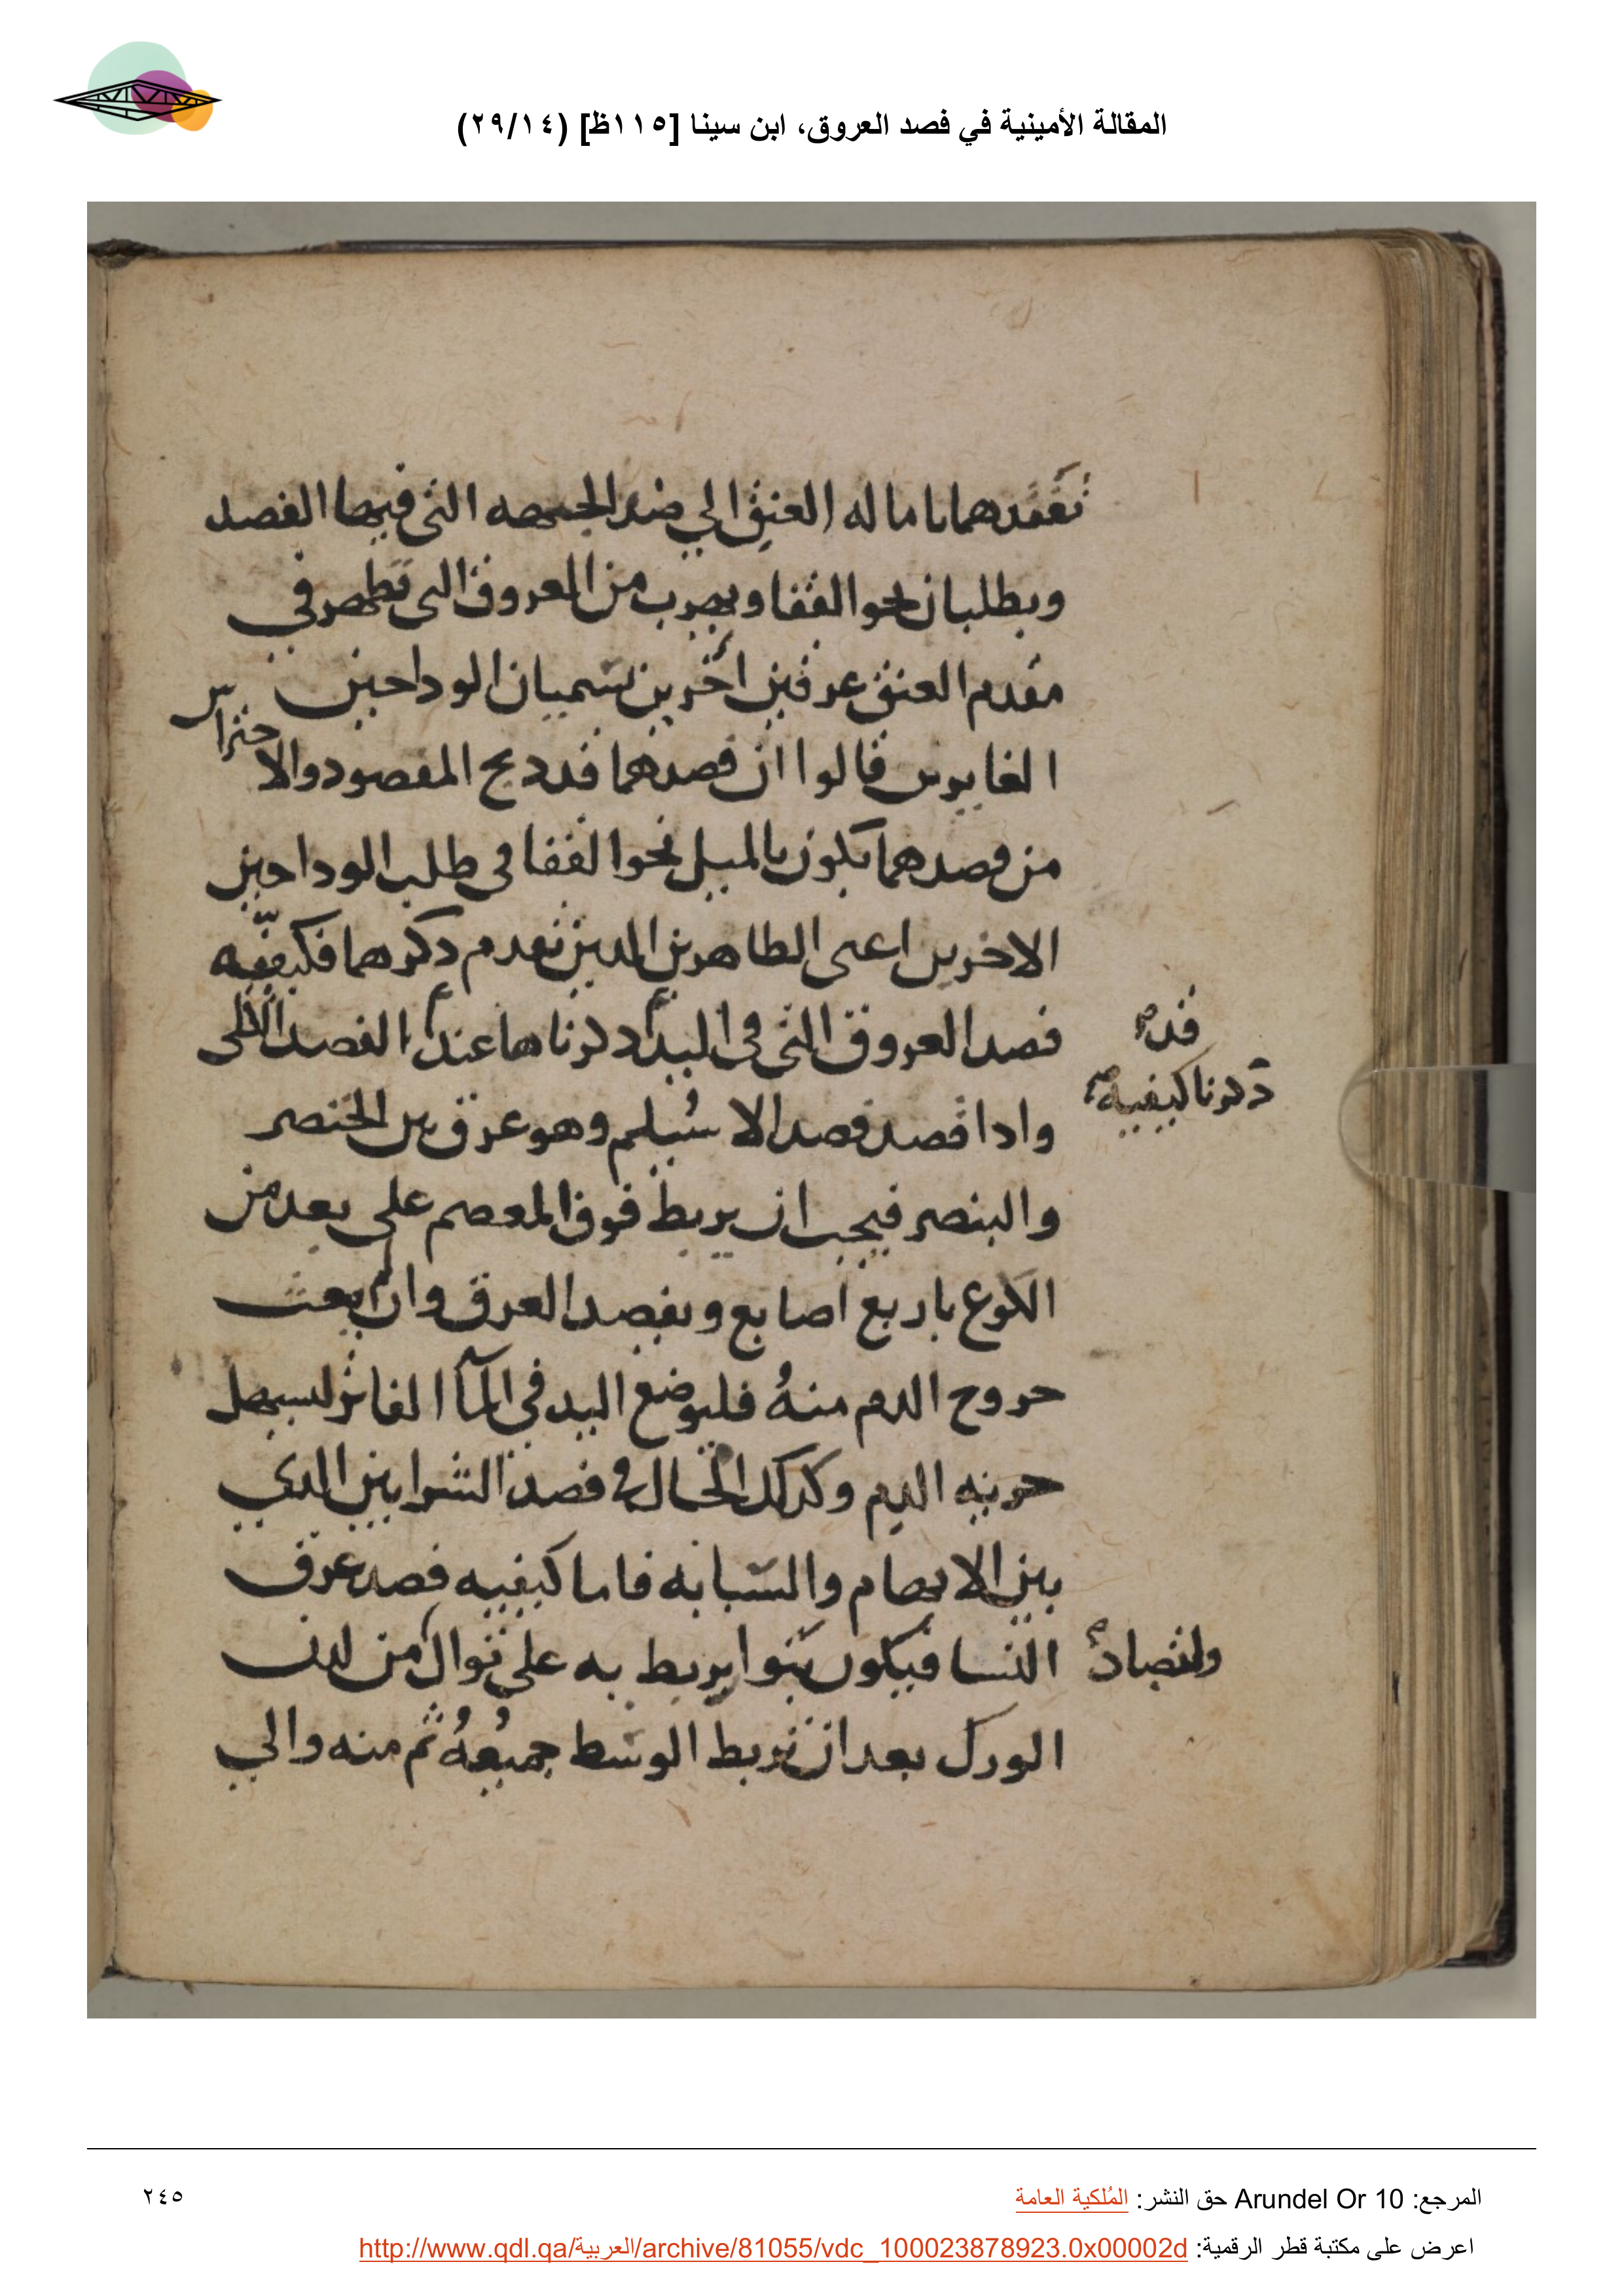 المقالة الأمينية في فصد العروق، ابن سينا [١١٥ظ] (٢٩/١٤)
تفقدهما باماله العنق الي ضد الجهه التى فيها الفصد
ويطلبان نحو القفا ويهرب من العروق التى تظهر في
مقدم العنق عرقين اخرين تسميان الوداجين
الغايرين قالوا ان فصدهما قد ذبح المفصود والاحتراس
من فصدهما يكون بالميل نحو القفا فى طلب الوداجين
الاخرين اعنى الظاهرين الذين تقدم ذكرهما فكيفيه
فصد العروق التى فى اليد ذكرناها عند الفصد الالى
قد
ذكرنا كيفية
واذا قصد فصد الاسيلم وهو عرق بين الخنصر
والبنصر فيجب ان يربط فوق المعصم على بعد من
الكوع باربع اصابع ويفصد العرق وان لم يعث
خروج الدم منهُ فليوضع اليد فى المآ الفاتر ليسهل
جريه الدم وكذلك الحال فى فصد الشرايين الذي
بين الابهام والسبابه فاما كيفيه فصد عرق
النسا فيكون بتوا يربط به على توال من لدن
الورك بعد ان يربط الوسط جميعُهُ ثم منه والي
المرجع: Arundel Or 10 حق النشر: المُلكية العامة
٢٤٥
اعرض على مكتبة قطر الرقمية: http://www.qdl.qa/العربية/archive/81055/vdc_100023878923.0x00002d